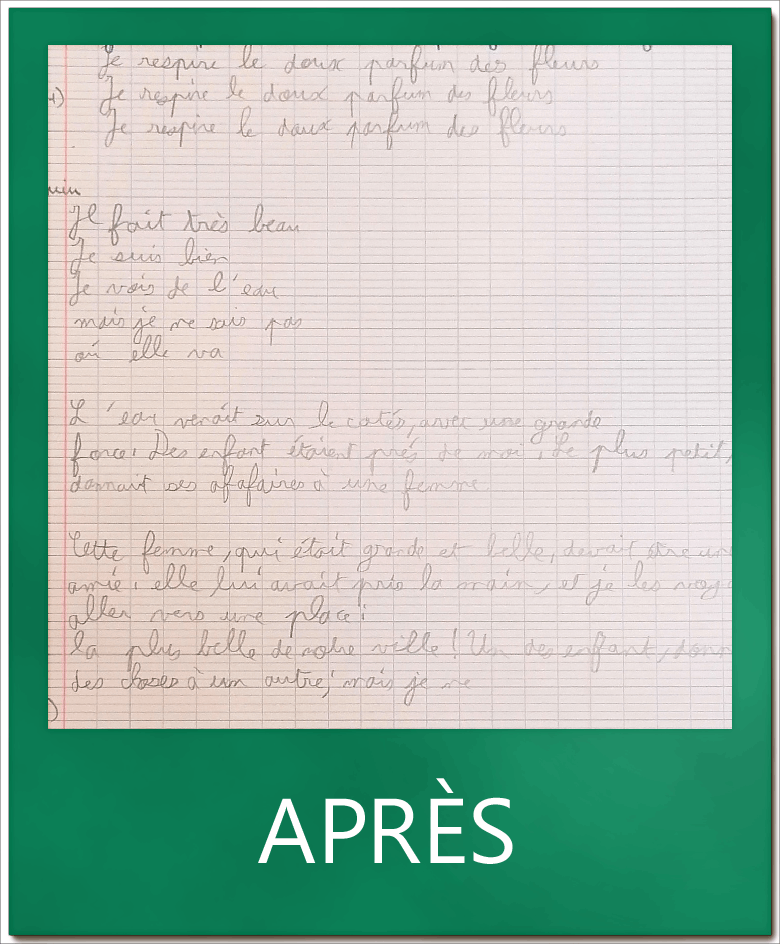 Je respire le doux parfum des fleurs
Je respire le doux parfum des fleurs
Je respire le doux parfum des fleurs
uin
Il fait très beau
Je suis bien
Je vois de l'eau
mais je ne sais pas
où elle va
L'eau venait sur le cotés, avec une grande
force. Des enfant étaient près de moi. Le plus petit,
donnait ses afafaires à une femme
Cette femme, qui était grande et belle, devait être un
amie. elle lui avait pris la main, et je les voy
aller vers une place:
la plus belle de notre ville ! Un des enfant, donn
des choses à un autre, mais je ne
APRÈS